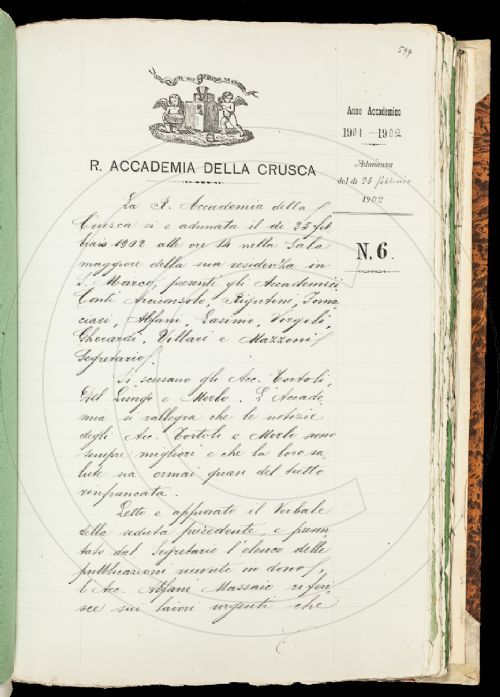 599
R. ACCADEMIA DELLA CRUSCA
Anno Accademico
1901-1902
Adunanza
del dì 25 febbraio
1902
N. 6.
La R. Accademia della
Crusca si è adunata il dì 25 feb
braio 1902 alle ore 14 nella Sala
maggiore della sua residenza in
S. Marco, presenti gli Accademici
Conti Arciconsolo, Rigutini, Tomma
ciari, Alfani, Lasinio, Vergili,
Gherardi, Villari e Mazzoni
Segretario.
Si scusano gli Acc. Tortoli,
Del Lungo e Morlo. L'Accade
mia si rallegra che le notizie
degli Acc. Tortoli e Morlo sono
sempre migliori e che la loro sa
lute sia ormai quasi del tutto
rinfrancata.
Letto e approvato il Verbale
della seduta precedente, e presen
tato dal Segretario l'elenco delle
pubblicazioni ricevute in dono,
l'Acc. Alfani Massaio riferi
sce sui lavori urgenti che